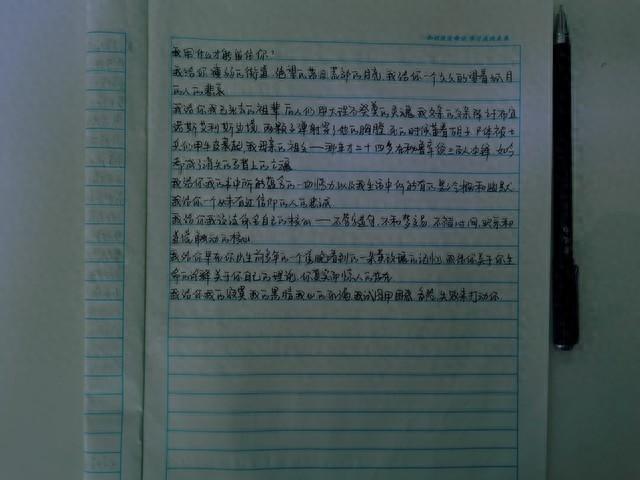 我用什么才能留住你？
我给你瘦落的街道、绝望的落日、荒郊的月亮，我给你一个久久的望着孤月
的人的悲哀
我给你我已死去的祖辈，后人们用大理石祭奠的先魂，我父亲的父亲，阵亡于布宜
诺斯艾利斯边境，两颗子弹射穿了他的胸膛，死的时候蓄着胡子，尸体被士
兵们用牛皮裹起，我母亲的祖父——那年才二十四岁在秘鲁率领三百人冲锋，如今
都成了消失的马背上的亡魂
我给你我的书中所能蕴含的一切悟力，以及我生活中所能有的男子气概和幽默
我给你一个从未有过信仰的人的忠诚
我给你我设法保全自己的核心——不营字造句，不和梦交易，不被时间、欢乐和
逆境触动的核心
我给你早在你出生前多年的一个傍晚看到的一朵黄玫瑰的记忆，我给你关于你生
命的诠释，关于你自己的理论，你真实而惊人的存在
我给你我的寂寞、我的黑暗、我心的饥渴，我试图用困惑、危险、失败来打动你